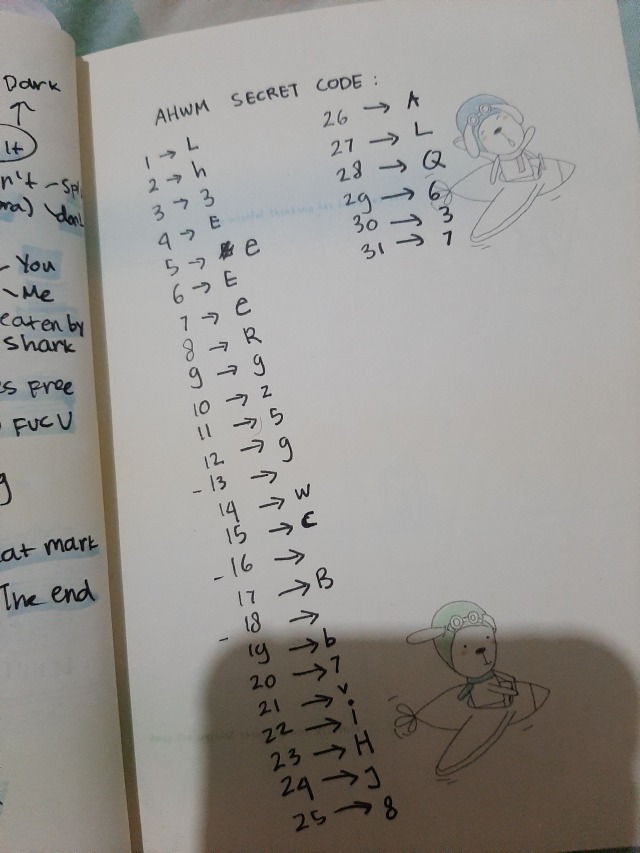 Dark
It
You
Me
eaten by
shark
Free
FUCU
at mark
The end
AHWM SECRET CODE :
1 → L
2 → h
3 → 3
4 → E
5 → e
6 → E
7 → e
8 → R
9 → g
10 → 2
11 → 5
12 → g
- 13 →
14 → w
15 → C
- 16 →
17 → B
- 18 →
19 → b
20 → 7
21 → v
22 → i
23 → H
24 → J
25 → 8
26 → A
27 → L
28 → Q
29 → 6
30 → 3
31 → 7